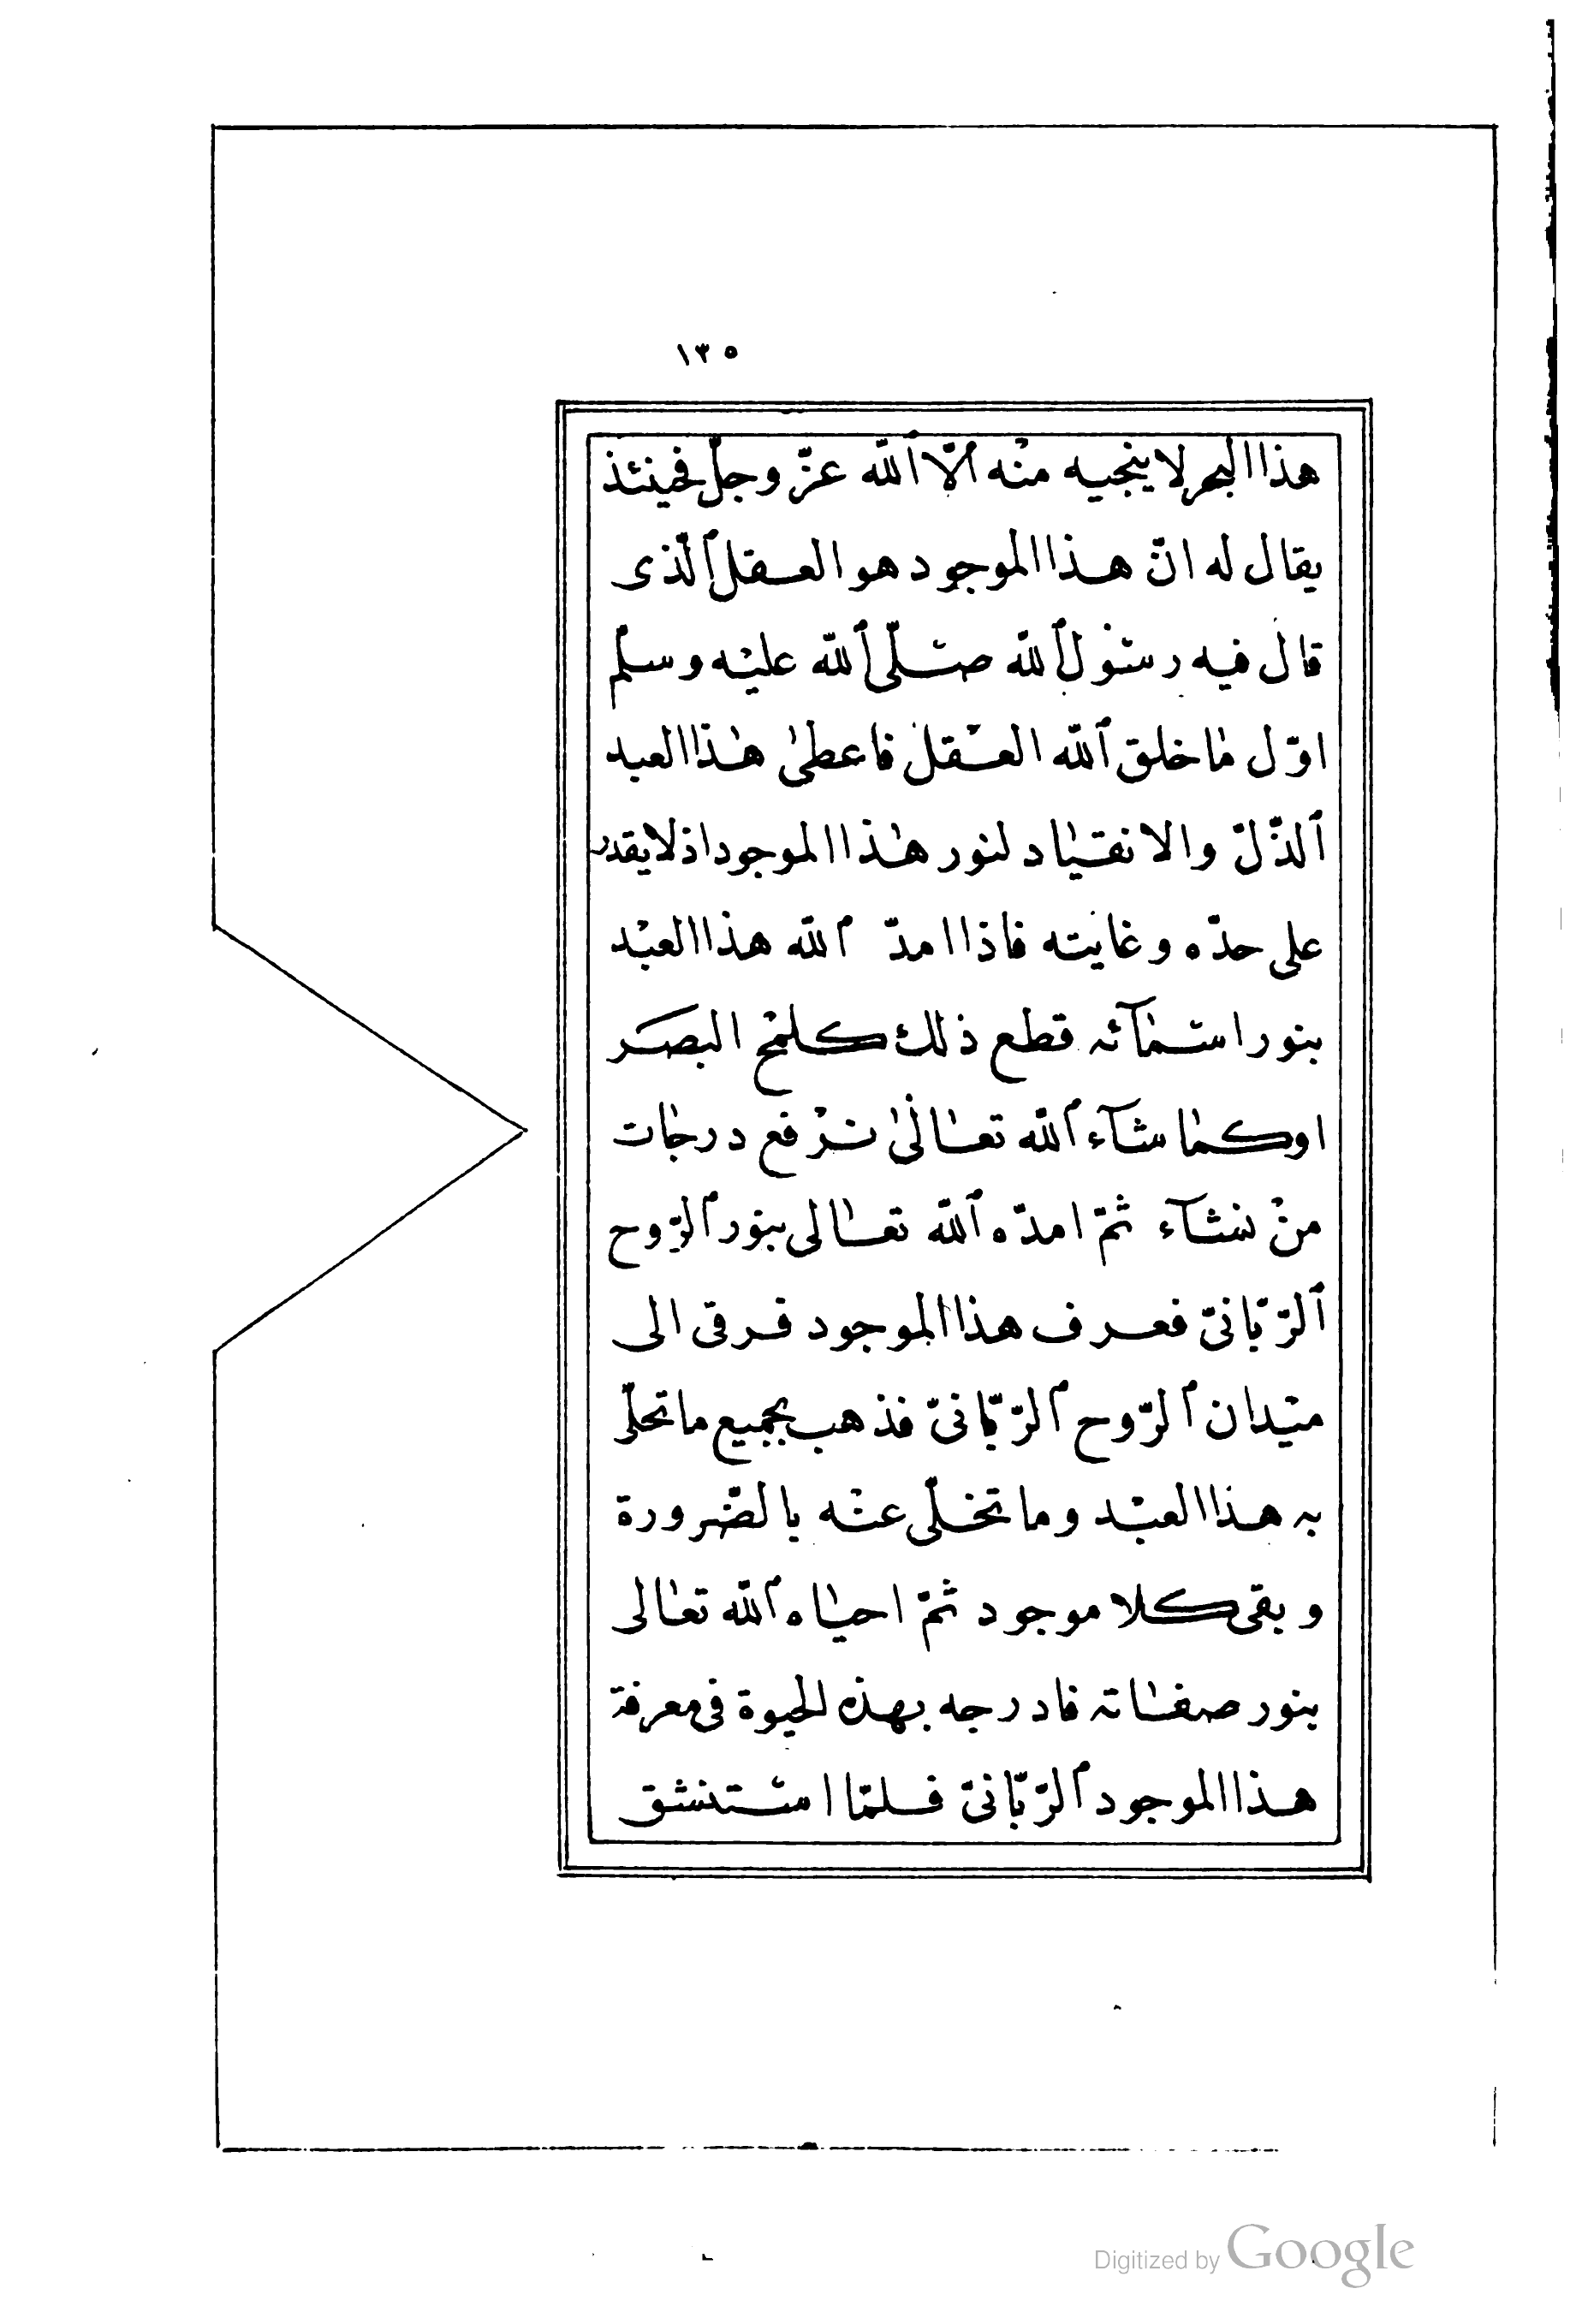 ١٣٥
هذا البحر لا ينجيه منْه اٰلّا اٰللّه عزّ وجلّ فحينئذ
يقال له انّ هذا الموجود هو العقل اٰلّذى
قال فيه رسْول اٰللّه صلّى اٰللّه عليْه وسلّم
اوّل مٰا خلق اٰللّه العقْل فاعطىٰ هٰذا العبد
اٰلذّلّ والانقيٰاد لنور هٰذا الموجود اذ لا يقدر
على حدّه وغايته فاذا امدّ اٰللّه هذا العبْد
بنور اسْمٰآئه قطع ذلك كلمْح البصَر
او كمٰا شآء اٰللّه تعٰالىٰ نرْفع درجٰات
منْ نشآء ثمّ امدّه اٰللّه تعٰالى بنور اٰلرّوح
اٰلرّبّانىّ فعرف هذا الموجود فرقى الى
ميْدان اٰلرّوح اٰلرّبّانىّ فذهب بجميع ما تحلّى
به هذا العبْد وما تخلّى عنْه بالضّرورة
وبقى كلا موجود ثمّ احيٰاه اٰللّه تعٰالى
بنور صفٰاته فادرجه بهذه الحيوة فى معرفة
هذا الموجود اٰلرّبّانىّ فلمّا اسْتنشق
Digitized by Google